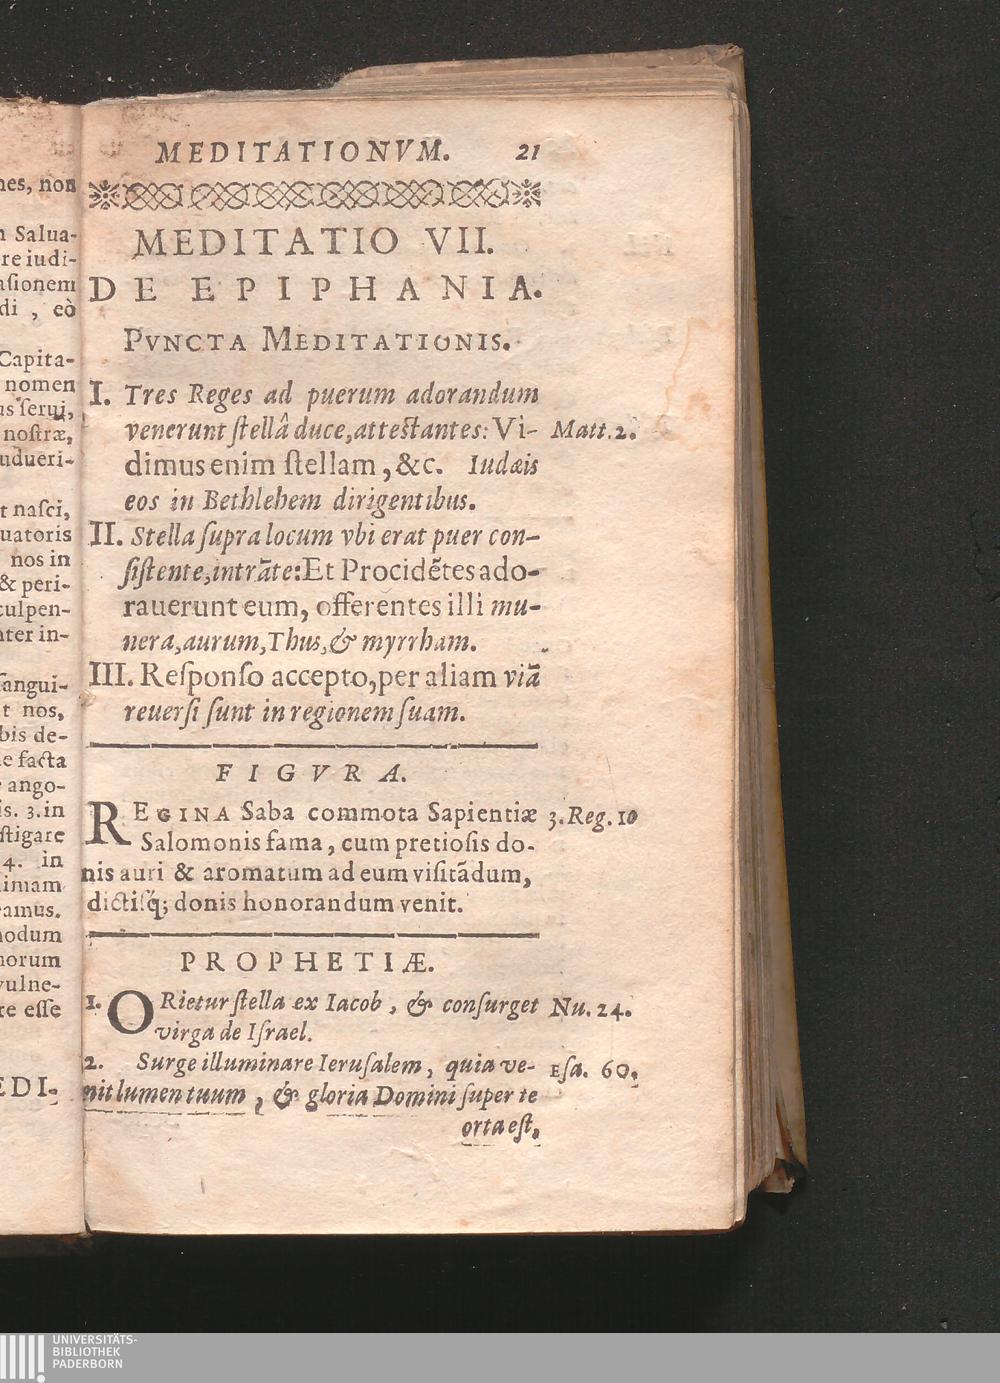 nes, non
n Salua-
re iudi-
asionem
di, eò
Capita-
nomen
us serui,
nostræ,
udueri-
t nasci,
uatoris
nos in
& peri-
culpen-
nter in-
sangui-
t nos,
bis de-
e facta
ango-
is. 3. in
stigare
4. in
imam
amus.
nodum
norum
vulne-
re esse
EDI-
MEDITATIONVM. 21
MEDITATIO VII.
DE EPIPHANIA.
PVNCTA MEDITATIONIS.
I. Tres Reges ad puerum adorandum
venerunt stellâ duce, attestantes: Vi- Matt. 2.
dimus enim stellam, &c. Iudæis
eos in Bethlehem dirigentibus.
II. Stella supra locum vbi erat puer con-
sistente, intrãte: Et Procidẽtes ado-
rauerunt eum, offerentes illi mu-
nera, aurum, Thus, & myrrham.
III. Responso accepto, per aliam viã
reuersi sunt in regionem suam.
FIGVRA.
REGINA Saba commota Sapientiæ 3. Reg. 10
Salomonis fama, cum pretiosis do-
nis auri & aromatum ad eum visitãdum,
dictisq́; donis honorandum venit.
PROPHETIÆ.
1. ORietur stella ex Iacob, & consurget Nu. 24.
virga de Israel.
2. Surge illuminare Ierusalem, quia ve- Esa. 60.
nit lumen tuum, & gloria Domini super te
orta est,
UNIVERSITÄTS-
BIBLIOTHEK
PADERBORN